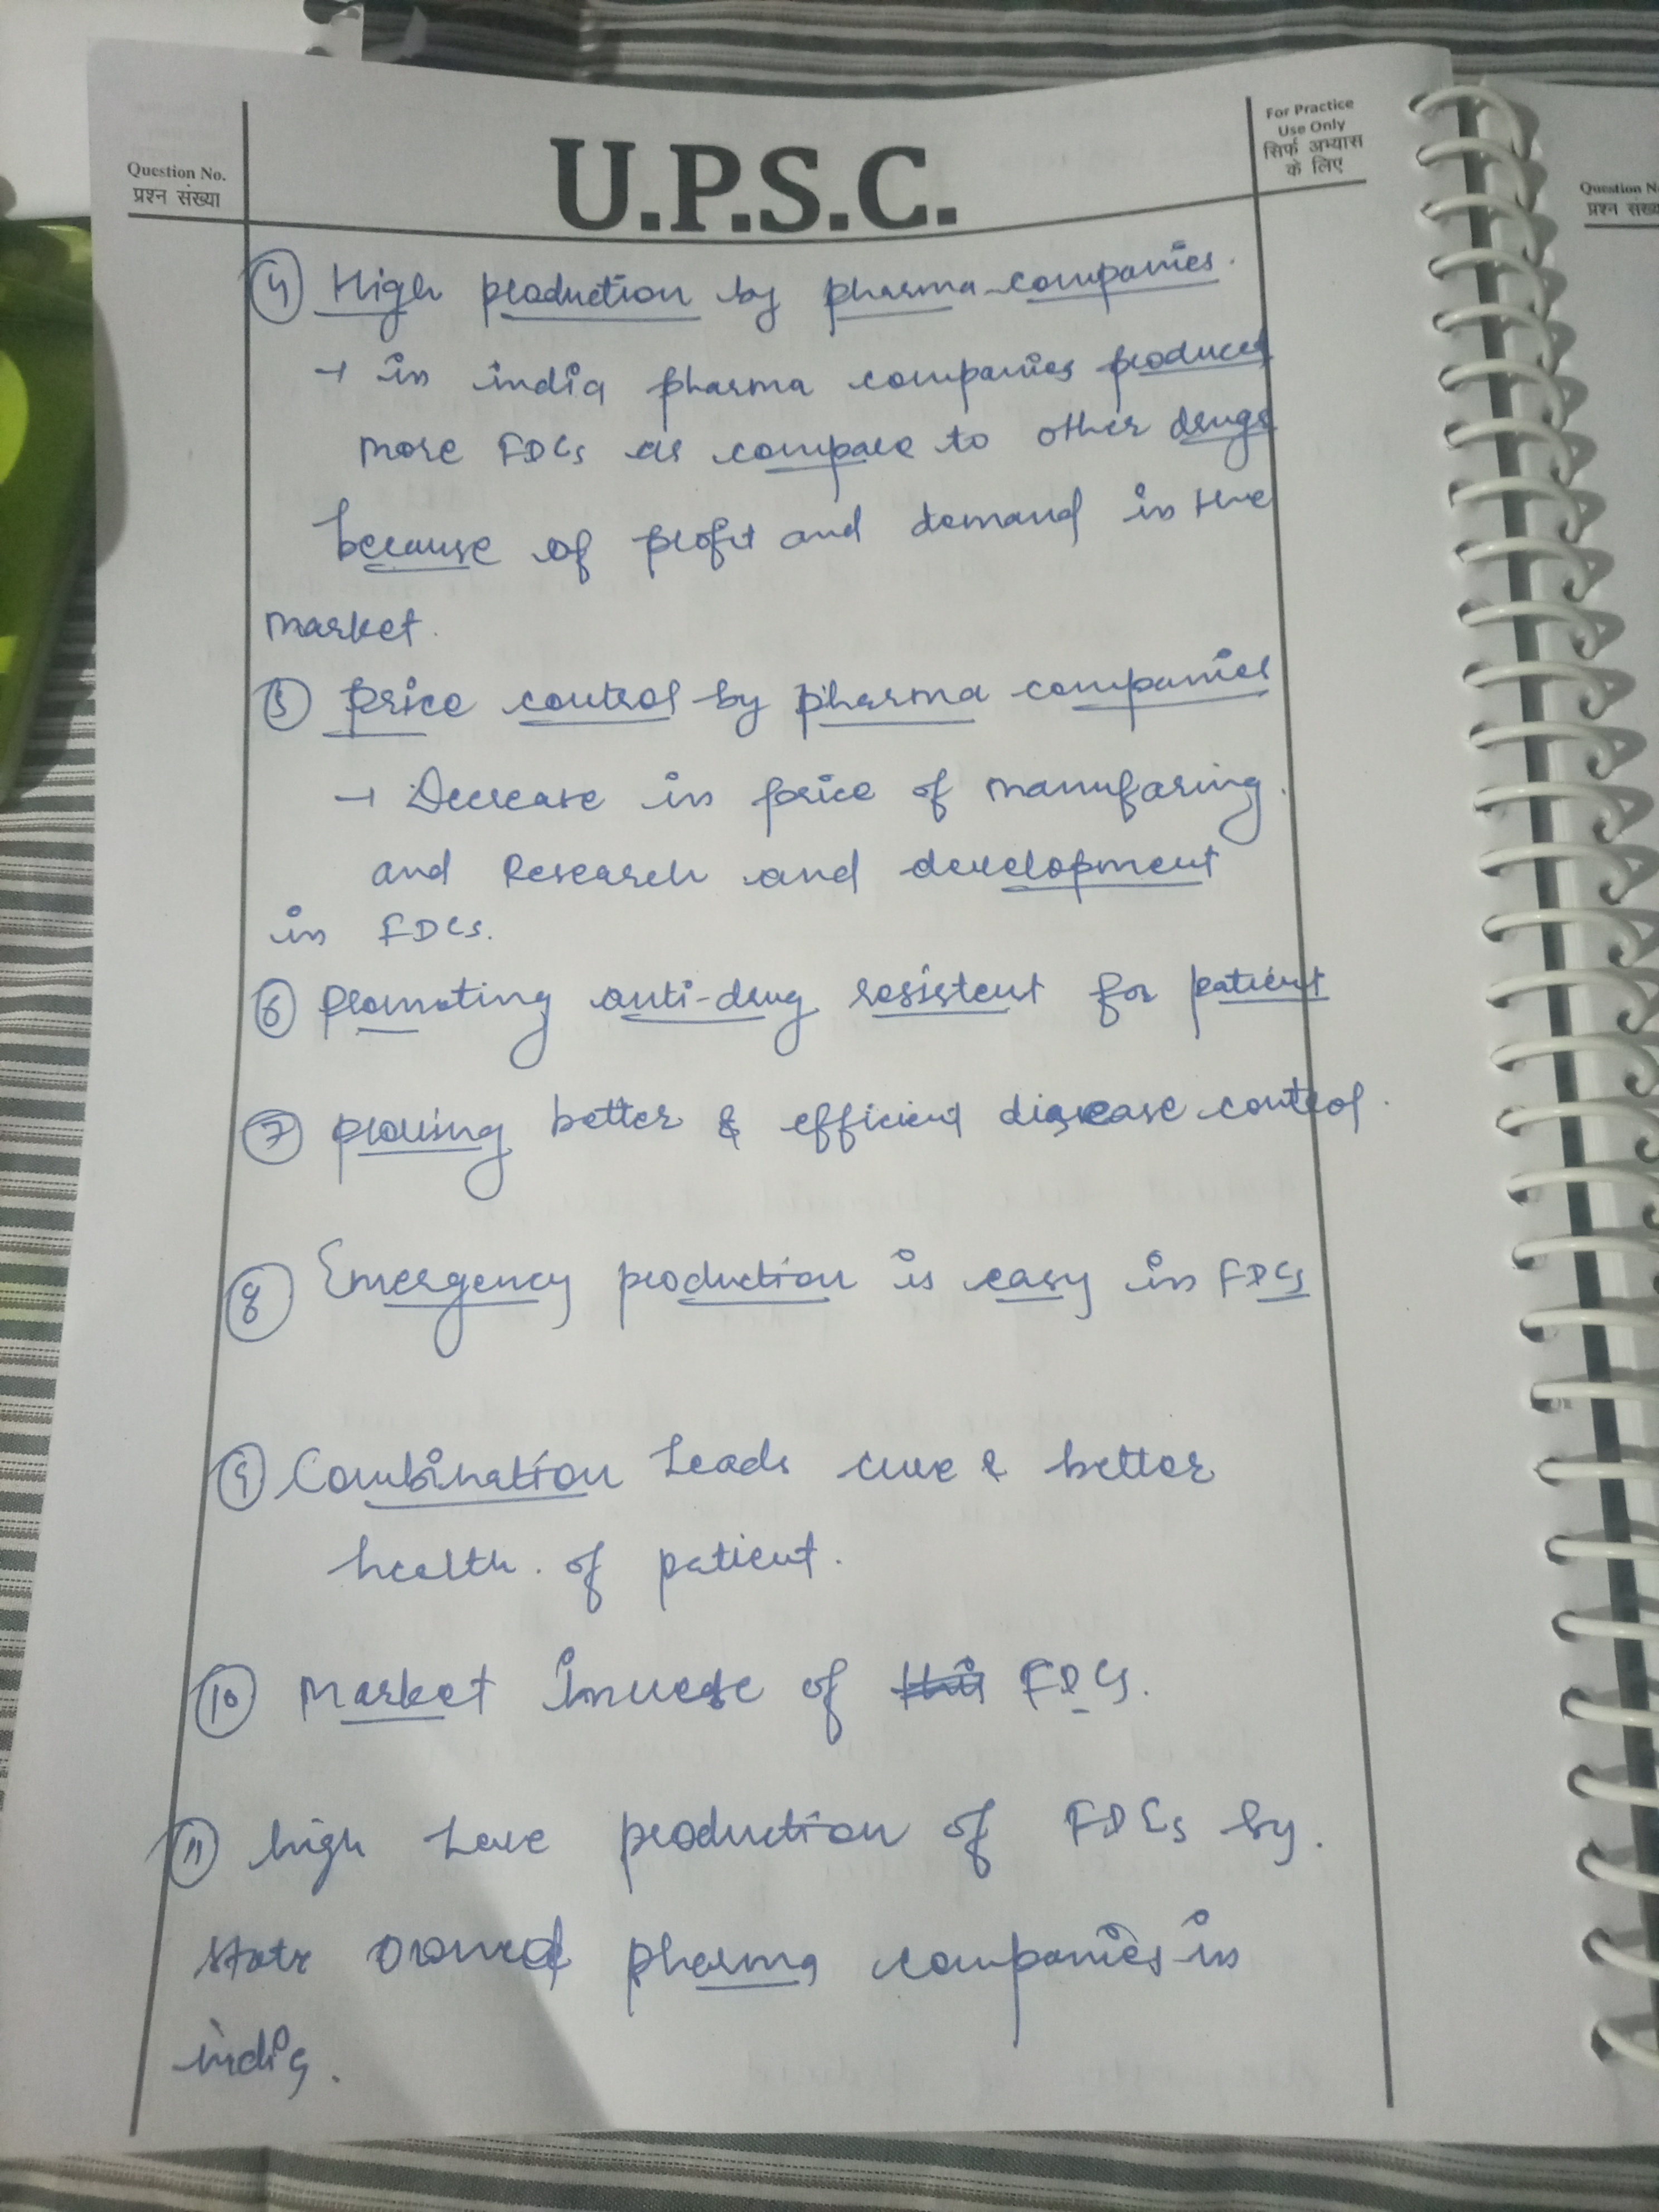 Question No.
प्रश्न संख्या
U.P.S.C.
For Practice
Use Only
सिर्फ अभ्यास
के लिए
④ High production by pharma companies.
→ in india pharma companies produces
more FDCs as compare to other drugs
because of profit and demand in the
market.
⑤ Price control by pharma companies
→ Decrease in price of manufaring
and Research and development
in FDCs.
⑥ promoting anti-drug resistent for patient
⑦ better & efficient disease control.
⑧ Emergency production is easy in FDCs
⑨ Combination Leads cure & better
health. of patient.
⑩ Market of FDCs.
⑪ high production of FDCs by.
state owned pharma companies in
india.
Question N
प्रश्न संख्य